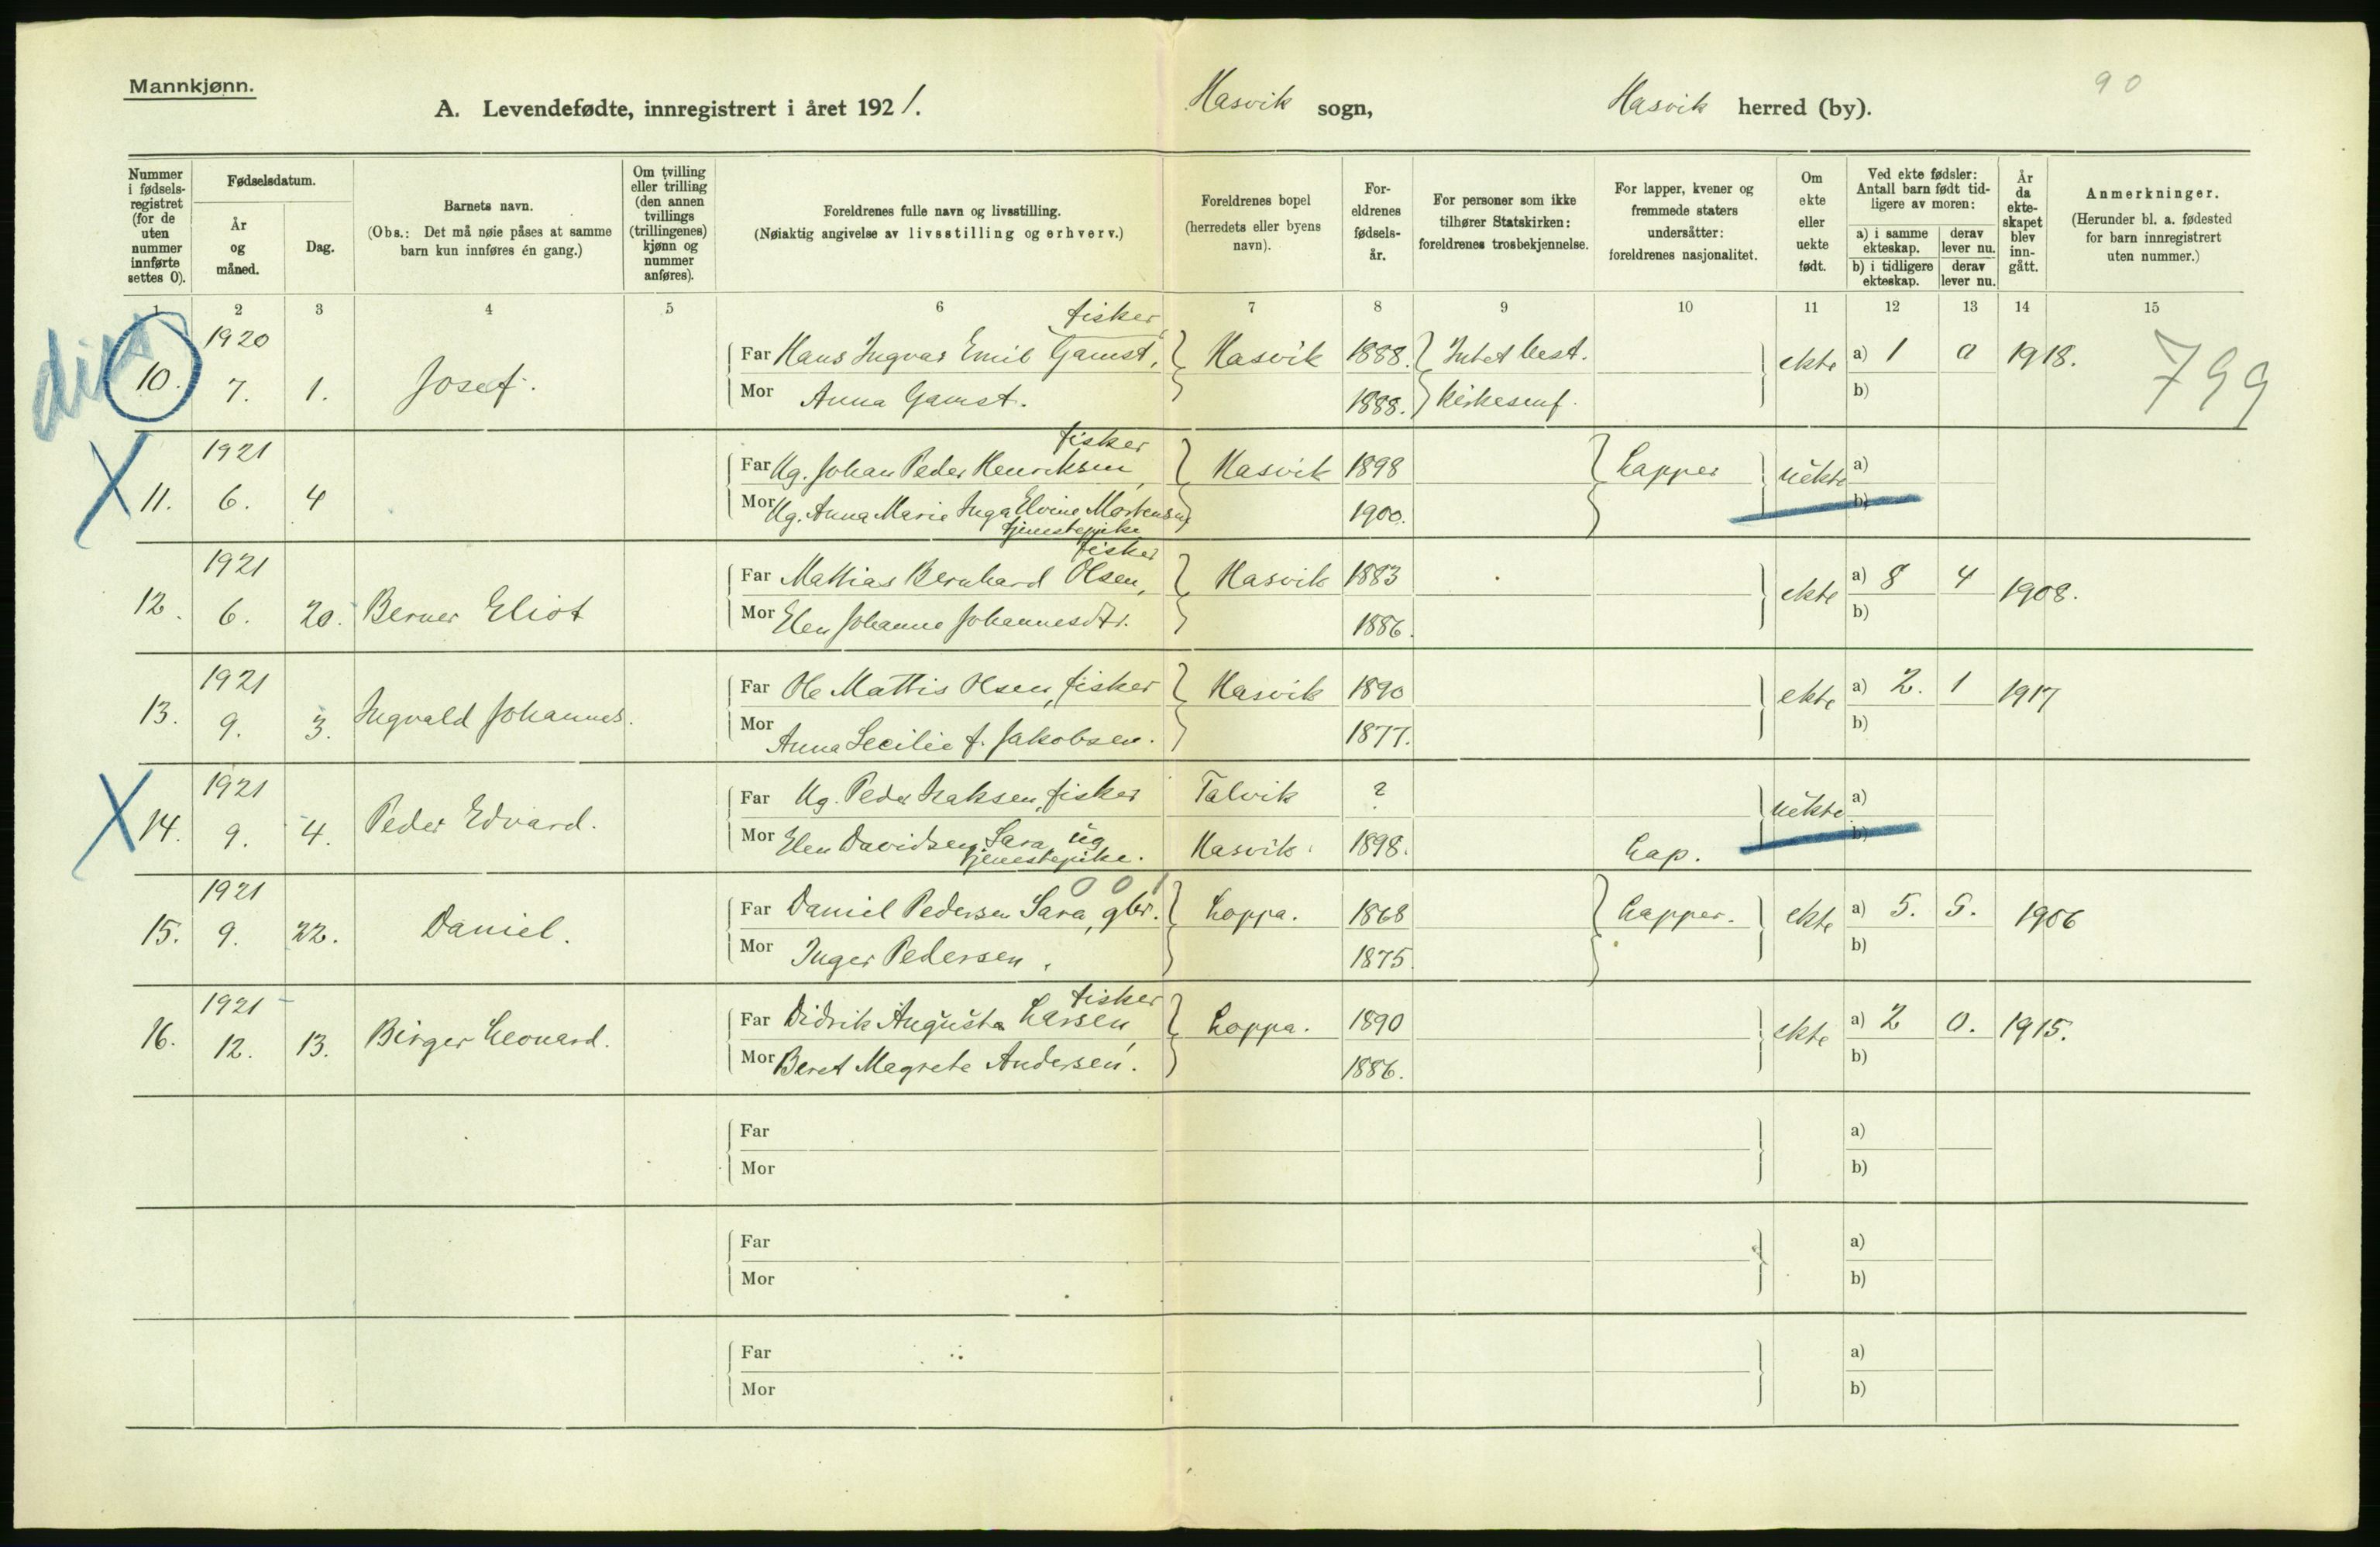 Mannkjønn.
90
A. Levendefødte, innregistrert i året 1921. Hasvik sogn, Hasvik herred (by).
Nummer i fødselsregistret (for de uten nummer innførte settes 0).
Fødselsdatum.
År og måned.
Dag.
Barnets navn.
(Obs.: Det må nøie påses at samme barn kun innføres én gang.)
Om tvilling eller trilling (den annen tvillings (trillingenes) kjønn og nummer anføres).
Foreldrenes fulle navn og livsstilling.
(Nøiaktig angivelse av livsstilling og erhverv.)
Foreldrenes bopel (herredets eller byens navn).
Foreldrenes fødselsår.
For personer som ikke tilhører Statskirken: foreldrenes trosbekjennelse.
For lapper, kvener og fremmede staters undersåtter: foreldrenes nasjonalitet.
Om ekte eller uekte født.
Ved ekte fødsler: Antall barn født tidligere av moren:
a) i samme ekteskap. derav lever nu.
b) i tidligere ekteskap. derav lever nu.
År da ekteskapet blev inngått.
Anmerkninger.
(Herunder bl. a. fødested for barn innregistrert uten nummer.)
1 2 3 4 5 6 7 8 9 10 11 12 13 14 15
1920 fisker
10. 7. 1. Josef. Far Hans Ingvar Emil Gamst, Hasvik 1888. Intet best. ekte a) 1 0 1918. 799
Mor Anna Gamst. 1888. kirkesamf. b)
1921 fisker
X 11. 6. 4 Far Ug. Johan Peder Henriksen, Hasvik 1898 Lapper uekte a)
Mor Ug. Anna Marie Inga Elvine Mortensen 1900. b)
tjenestepike
1921 fisker
12. 6. 20. Berner Eliot Far Mathias Bernhard Olsen, Hasvik 1883 ekte a) 8 4 1908.
Mor Elen Johanne Johannesdtr. 1886. b)
1921
13. 9. 3. Ingvald Johannes. Far Ole Mathis Olsen, fisker Hasvik 1890 ekte a) 2. 1 1917
Mor Anna Cecilie f. Jakobsen. 1877. b)
1921
X 14. 9. 4. Peder Edvard. Far Ug. Peder Isaksen, fisker Talvik ? uekte a)
Mor Elen Davidsen Sara, ug Hasvik. 1898. Lap. b)
tjenestepike.
1921 0 0 1
15. 9. 22. Daniel. Far Daniel Pedersen Sara, gbr. Loppa. 1868 Lapper. ekte a) 5. 5. 1906
Mor Inger Pedersen. 1875. b)
1921 fisker
16. 12. 13. Birger Leonard. Far Didrik Augusta Larsen, Loppa. 1890 ekte a) 2 0. 1915.
Mor Beret Magrete Andersen. 1886. b)
Far a)
Mor b)
Far a)
Mor b)
Far a)
Mor b)